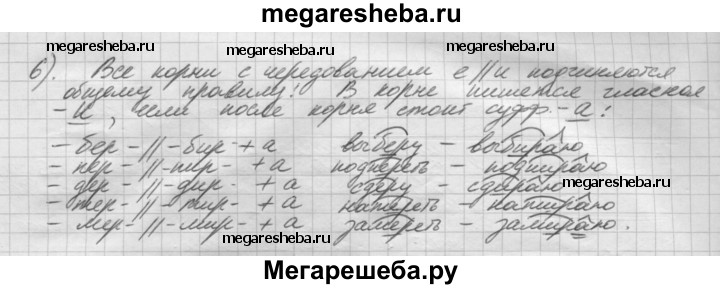 megaresheba.ru
megaresheba.ru megaresheba.ru megaresheba.ru
6). Все корни с чередованием е//и подчиняются
общему правилу: В корне пишется гласная
-и, если после корня стоит суфф.-а:
-бер-//-бир-+а выберу - выбираю
-пер-//-пир-+а подпереть - подпираю
-дер-//-дир-+а сдеру - сдираю
megaresheba.ru
-тер-//-тир-+а натереть - натираю
-мер-//-мир-+а замереть - замираю.
megaresheba.ru megaresheba.ru
Мегарешеба.ру